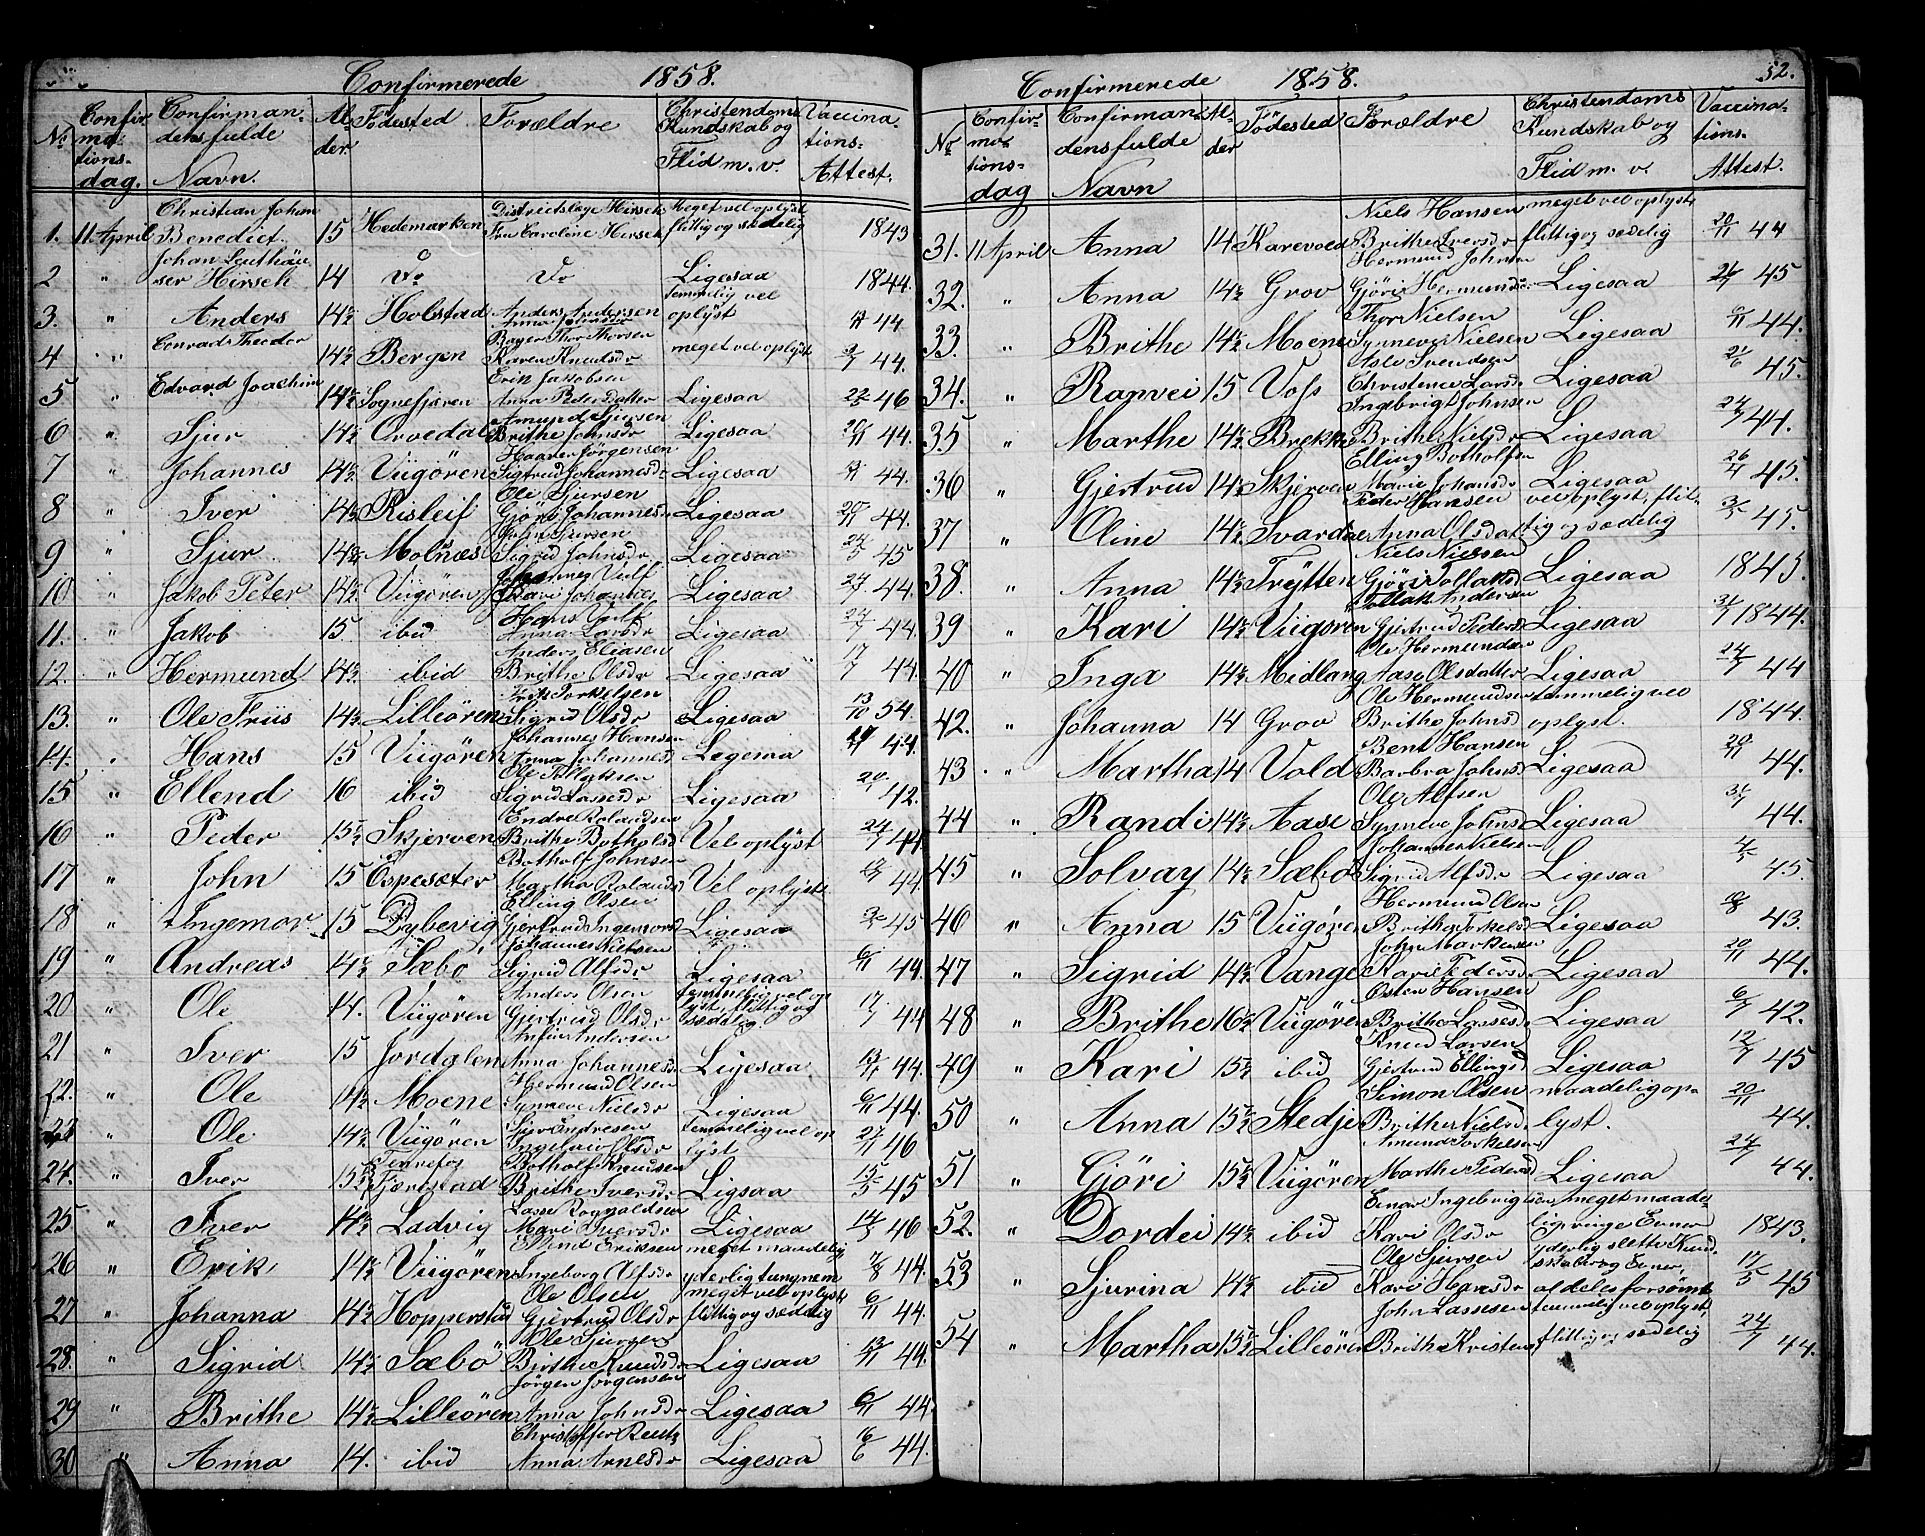 Confirmerede 1858.
No Confirmations-dag. Confirmandens fulde Navn. Alder Födested Forældre Christendoms Kundskab og Flid m. v. Vaccinations-Attest.
1. 11 April Christian Johan Benedict 15 Hedemarken Districtslæge Hirsch Fru Caroline Hirsch Meget vel oplyst flittig og sædelig 1843
2 " Johan Hirsch 14 do do Ligesaa 1844.
3. " Anders 14½ Holstad Anders Andersen Temmelig vel oplyst 44.
4 " Conrad Theodor 14½ Bergen Thor Thorsen Karen Knudsdr meget vel oplyst 44.
5 " Edvard Joachim 14½ Sognefjæren Erik Jakobsen Anna Pedersdatter Ligesaa 46
6 " Sjur 14½ Orvedal Amund Sjursen Brithe Johnsdr Ligesaa 20/11 44.
7 " Johannes 14½ Viigören Haaver Jörgensen Sigtrud Johannesdr Ligesaa 44.
8 " Iver 14½ Risleif Ole Sjursen Gjöri Johannesdr Ligesaa 20/11 44.
9 " Sjur 14½ Molnæs Sigrid Johnsdr Ligesaa 45
10 " Jakob Peter 14½ Viigören Vulf Ligesaa 44.
11. " Jakob 15 ibid Hans Vulf Anna Larsdr Ligesaa 44.
12. " Hermund 14½ ibid Anders Eliasen Brithe Olsdr Ligesaa 17/7 44.
13. " Ole Friis 14½ Lilleören Erik Torkelsen Sigrid Olsdr Ligesaa 13/10 54.
14. " Hans 15 Viigören Johannes Hansen Anna Johannesd. 44.
15 " Ellend 16 ibid Ole Sigrid Lassesdr Ligesaa 42.
16 " Peder 15½ Skjerven Endre Rolandsen Brithe Botholfsd Vel oplyst 24/7 44.
17 " John 15 Ospesæter Botholf Johnsen Martha Rolandsd Vel oplyst 44.
18 " Ingemor 15 Dybevig Elling Olsen Gjertrud Ingemorsd Ligesaa 45
19 " Andreas 14½ Sæbö Johannes Nielsen Sigrid Alfsdr Ligesaa 6/11 44.
20 " Ole 14. Viigören Anders Olsen Gjertrud Olsdr temmelig vel oplyst, flittig og sædelig 17/7 44
21 " Iver 15 Jordalen Andersen Anna Johannesdr Ligesaa 44.
22. " Ole 14½ Moene Hermund Olsen Synneve Nielsdr Ligesaa 6/11 44.
23 " Ole 14½ Viigören Sjur Andresen Olsdr temmelig vel oplyst 27/11 46
24. " Iver 15½ Fjærestad Botholf Knudsen Brithe Iversdr Ligsaa 15/5 45
25 " Iver 14½ Ladvig Lasse Rognaldsen Mari Iversdr Ligesaa 14/5 46
26 " Erik 14½ Viigören Eriksen Ingeborg Alfsdr meget maadelig yderlig tungnem 7/8 44.
27 " Johanna 14½ Hopperstad Ole Olsen Gjertrud Olsdr meget vel oplyst flittig og sædelig 6/11 44.
28. " Sigrid 14½ Sæbö Ole Sjursen Brithe Knudsdr Ligesaa 44.
29 " Brithe 14½ Lilleören Jörgen Jörgensen Anna Johnsdr Ligesaa 6/11 44.
30 " Anna 14. ibid Christoffer Reutz Anna Arnesdr Ligesaa 16/6 44.
Confirmerede 1858. 52.
No Confirmations-dag Confirmandens fulde Navn Alder Födested Forældre Christendoms Kundskab og Flid m. v. Vaccinations-Attest.
31. 11 April Anna 14 Karevold Niels Hansen Brithe Iversdr meget vel oplyst flittig og sædelig 20/11 44
32. " Anna 14½ Grov Hermund Johnsen Gjöri Hermundsdr Ligesaa 45.
33. " Brithe 14½ Moene Thor Nielsen Synneve Nielsen Ligesaa 6/11 44.
34. " Ranvei 15 Voss Asle Svendsen Christence Larsd. Ligesaa 45.
35 " Marthe 14½ Brekke Ingebrigt Johnsen Brithe Nielsdr Ligesaa 24/7 44.
36 " Gjertrud 14½ Skjerven Elling Botholfsen Marie Johansdr Ligesaa 45.
37 " Oline 14½ Svardal Peder Hansen Anna Olsdat vel oplyst, flittig og sædelig 45.
38. " Anna 14½ Frytten Niels Nielsen Gjöri Tollaksd Ligesaa 1845.
39 " Kari 14½ Viigören Tollak Andersen Gjertrud Pedersd Ligesaa 31/7 1844.
40 " Inga 14½ Midlang Ole Hermundsen Aase Olsdatter Ligesaa 24/7 44
42. " Johanna 14 Grov Ole Hermundsen Brithe Johnsd temmelig vel oplyst. 1844.
43 " Martha 14 Vold Bent Hansen Barbra Johnsd Ligesaa 20/11 44.
44 " Randi 14½ Aase Ole Alfsen Synneve Johnsd Ligesaa 31/7 44.
45 " Solvay 14½ Sæbö Johannes Nielsen Sigrid Alfsdr Ligesaa 4/5 45.
46 " Anna 15 Viigören Hermund Olsen Brithe Torkelsd Ligesaa 43.
47 " Sigrid 14½ Vange John Markusen Kari Pedersd Ligesaa 20/11 44.
48 " Brithe 16½ Viigören Osten Hansen Brithe Lassesd Ligesaa 6/7 42.
49 " Kari 15½ ibid Knud Larsen Gjertrud Ellingsd Ligesaa 12/7 45
50 " Anna 15½ Stedje Simon Olsen Brithe Nielsd. maadelig oplyst. 20/11 44.
51 " Gjöri 15½ Viigören Amund Torkelsen Marthe Pedersd Ligesaa 24/7 44.
52. " Dordei 14½ ibid Einar Ingebrigtsen Kari Olsdr meget maadelig ringe Evner 1843.
53 " Sjurina 14½ ibid Ole Sjursen Kari Hansdr yderlig slette Kundskaber og Evner, aldeles forsömt 17/5 45
54 " Martha 15½ Lilleören John Lassesen Brithe Kristens temmelig vel oplyst flittig og sædelig 24/7 44.